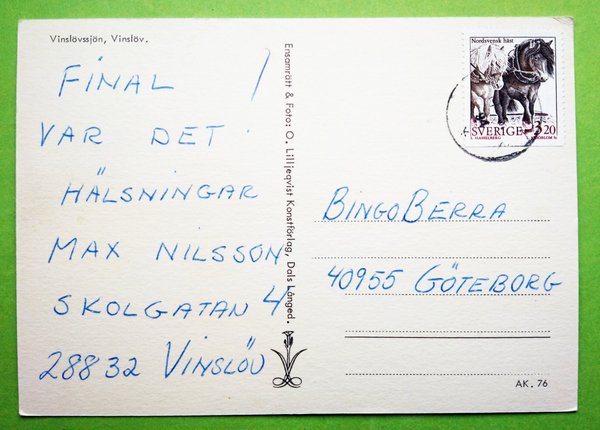 Vinslövssjön, Vinslöv.
FINAL
VAR DET.
HÄLSNINGAR
MAX NILSSON
SKOLGATAN 4
28832 VINSLÖV
Ensamrätt & Foto: O. Lilljeqvist Konstförlag, Dals Långed.
Nordsvensk häst
SVERIGE 3.20
BINGOBERRA
40955 GÖTEBORG
AK. 76